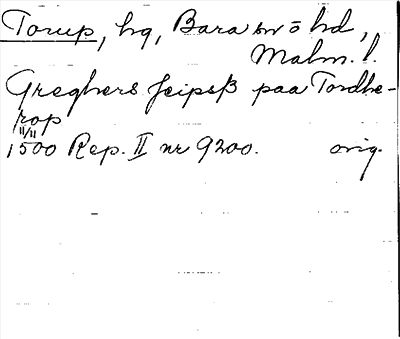 Torup, hg, Bara sn o hd,
Malm. l.
Greghers Jeipsß paa Tordhe-
rop
11/11
1500 Rep. II nr 9200. orig.